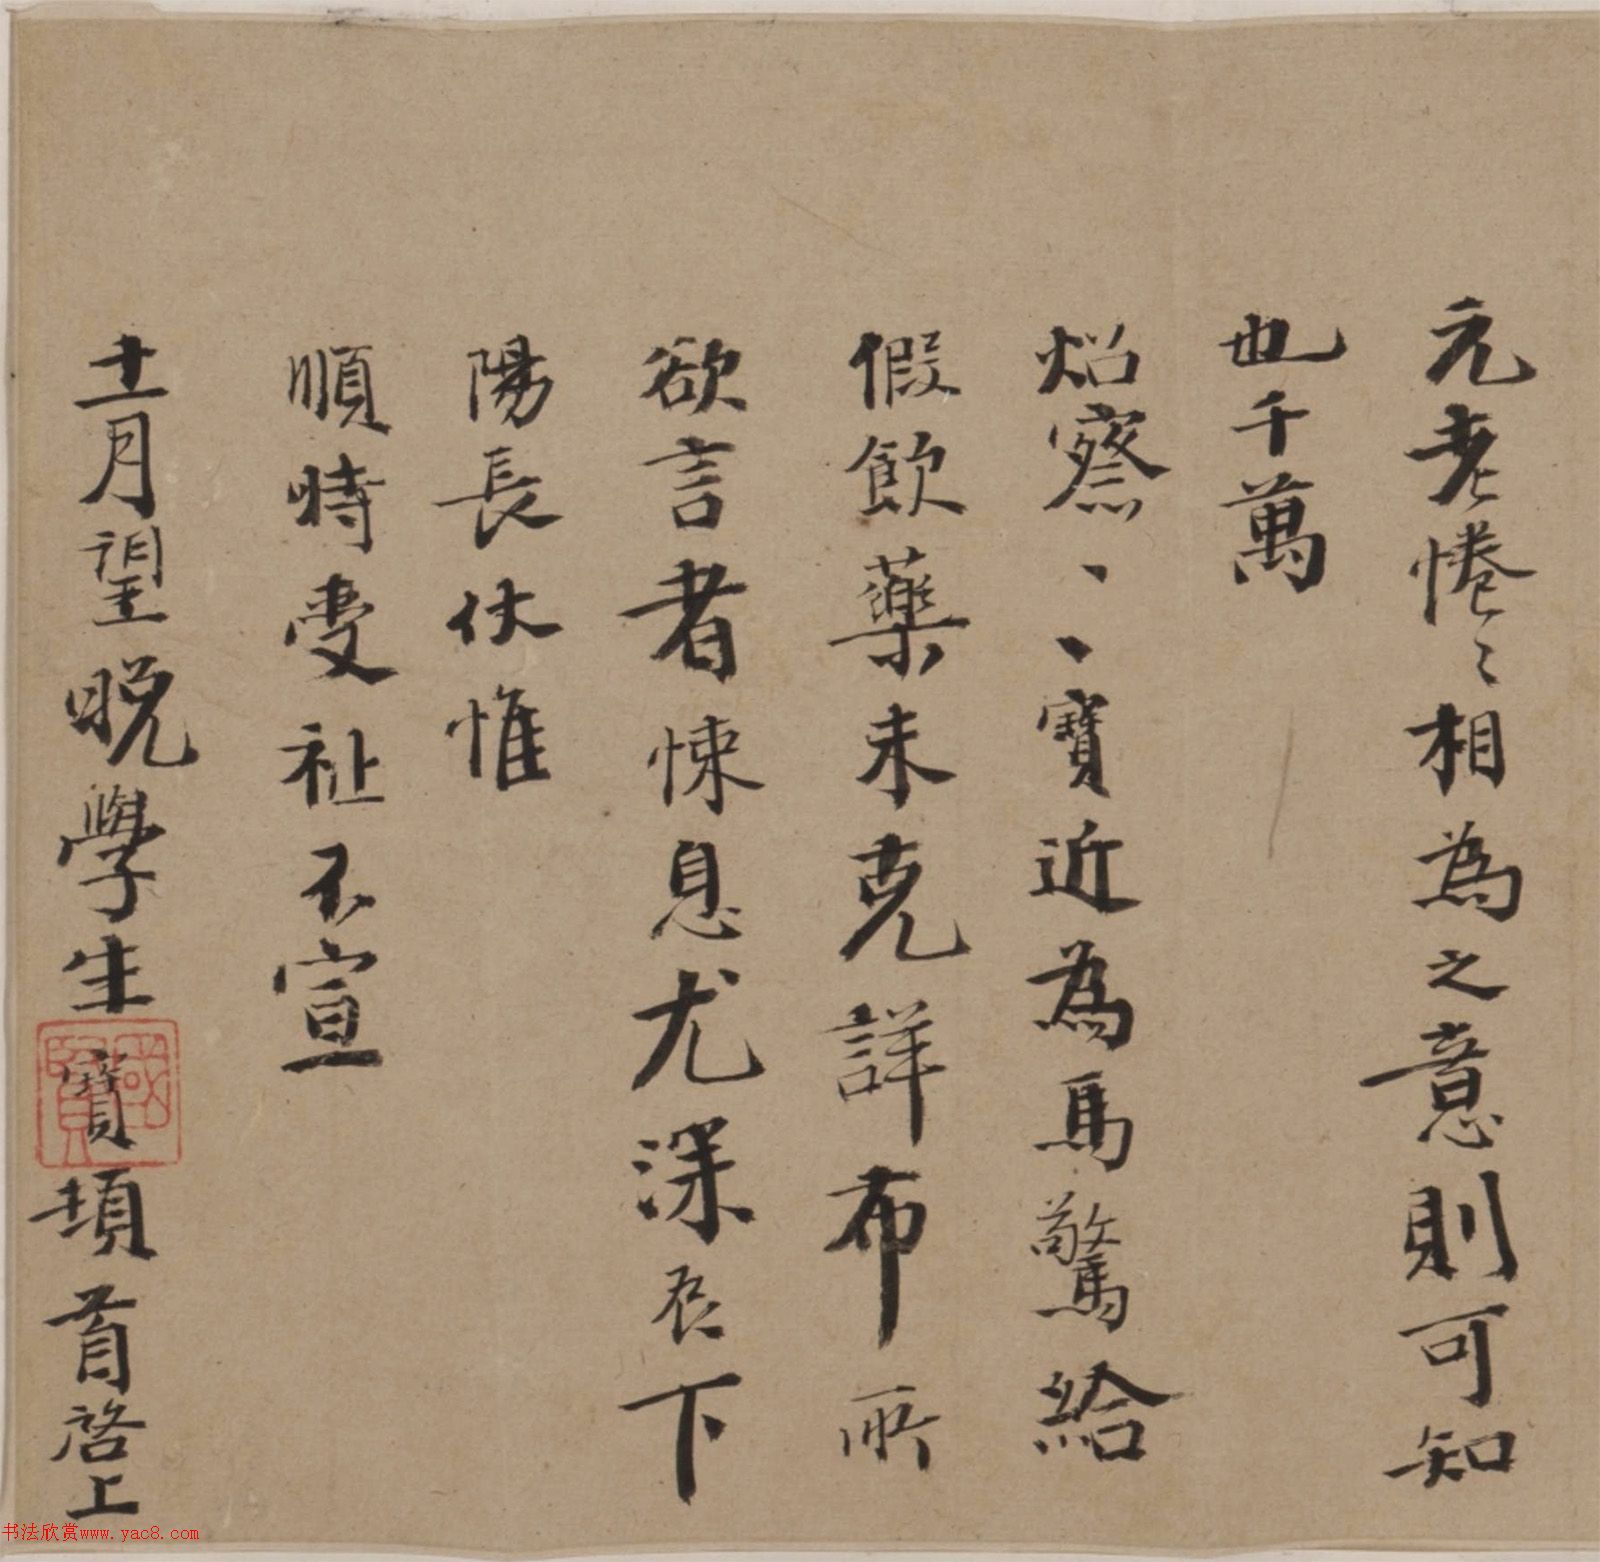 元老惓〻相為之意則可知
也千萬
炤察、、寶近為馬驚給
假飲藥未克詳布所
欲言者悚息尤深辰下
陽長伏惟
順時受祉不宣
十一月望晚學生寶頓首啓上
书法欣赏www.yac8.com